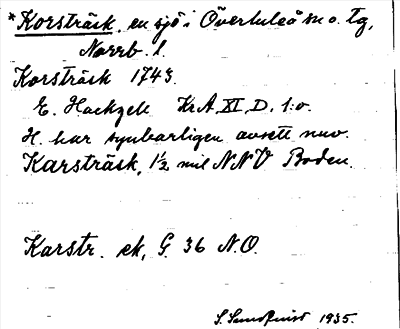 *Korsträsk, en sjö i Överluleå sn o. tg,
Norrb. l.
Korsträsk 1743.
E. Hackzell KrA. XI, D. 1:o.
H. har synbarligen avsett nuv.
Karsträsk, 1½ mil NNV Boden.
Karstr. ek, G 36 N.O.
S. Sundqvist 1935.